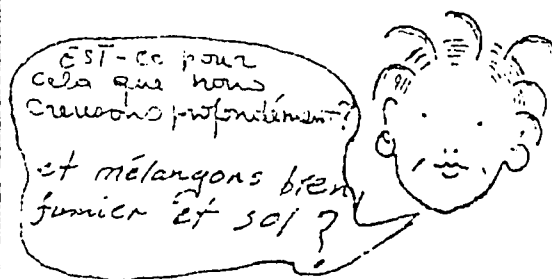 EST-ce pour
cela que nous
creusons profondément?
et mélangons bien,
fumier et sol ?